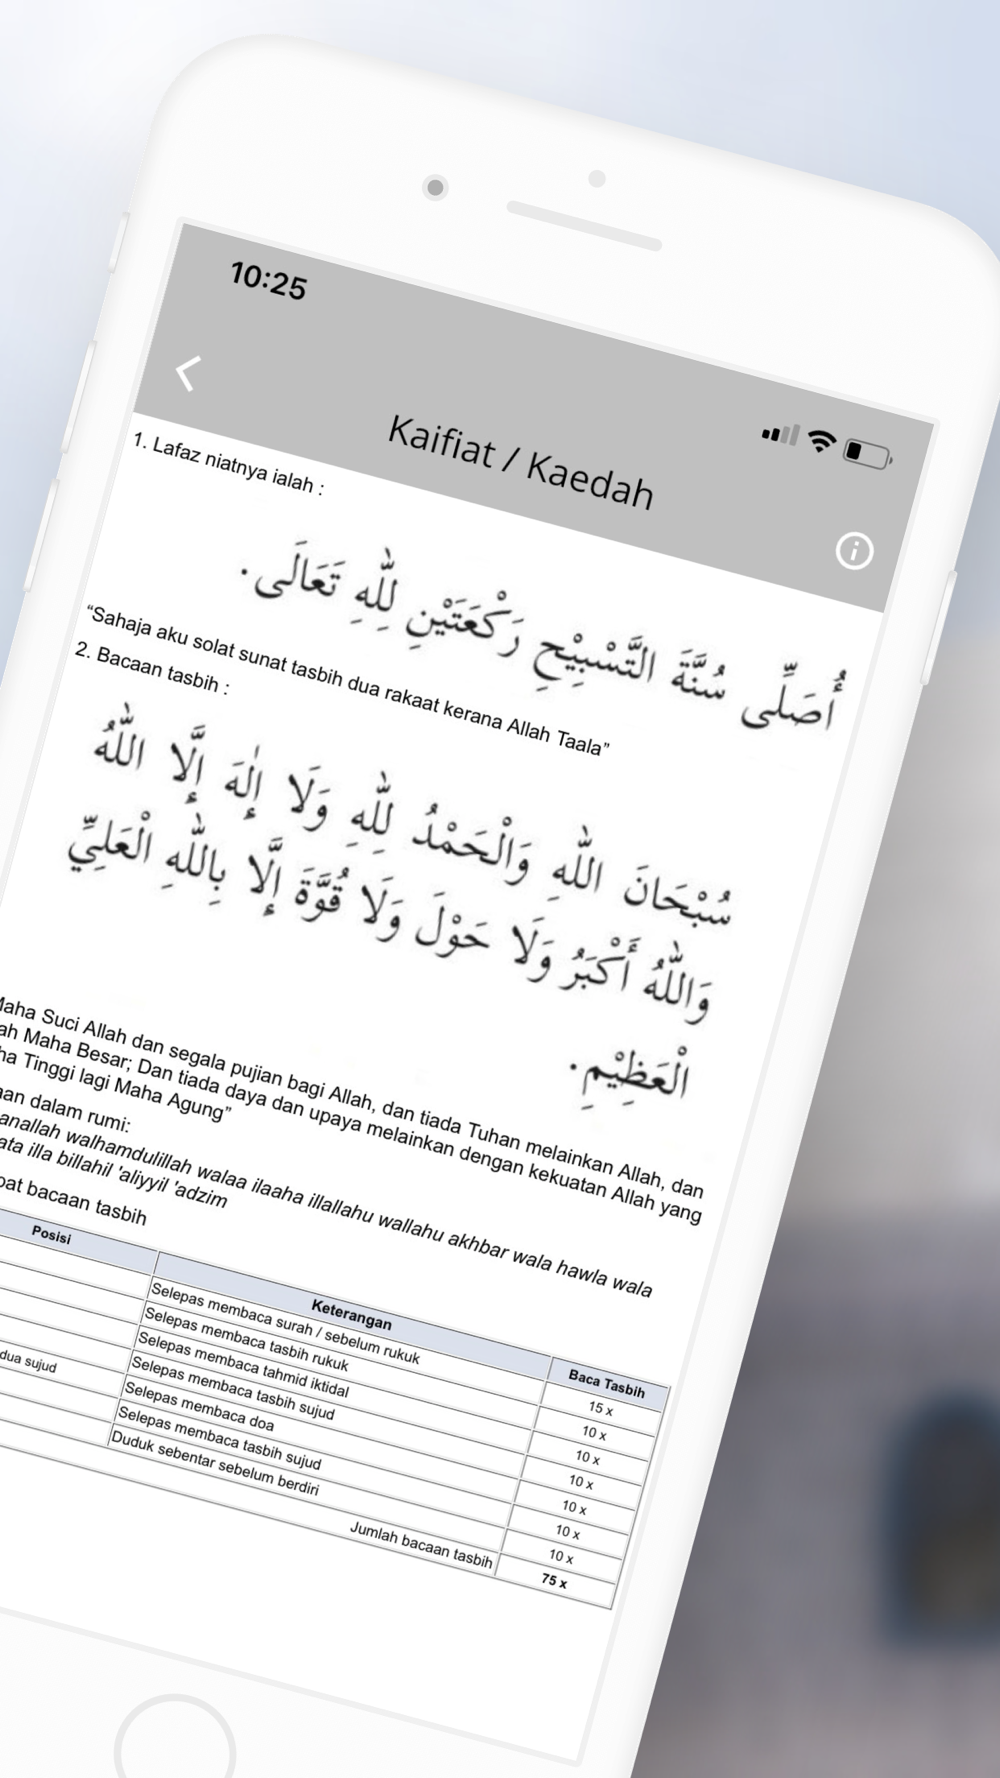 10:25
Kaifiat / Kaedah
1. Lafaz niatnya ialah :
أُصَلِّى سُنَّةَ التَّسْبِيْحِ رَكْعَتَيْنِ لِلّٰهِ تَعَالَى.
“Sahaja aku solat sunat tasbih dua rakaat kerana Allah Taala”
2. Bacaan tasbih :
سُبْحَانَ اللّٰهِ وَالْحَمْدُ لِلّٰهِ وَلَا إِلٰهَ إِلَّا اللّٰهُ
وَاللّٰهُ أَكْبَرُ وَلَا حَوْلَ وَلَا قُوَّةَ إِلَّا بِاللّٰهِ الْعَلِيِّ
الْعَظِيْمِ.
Maha Suci Allah dan segala pujian bagi Allah, dan tiada Tuhan melainkan Allah, dan
Maha Besar; Dan tiada daya dan upaya melainkan dengan kekuatan Allah yang
Tinggi lagi Maha Agung”
dalam rumi:
walhamdulillah walaa ilaaha illallahu wallahu akhbar wala hawla wala
illa billahil 'aliyyil 'adzim
bacaan tasbih
Posisi Keterangan Baca Tasbih
Selepas membaca surah / sebelum rukuk 15 x
Selepas membaca tasbih rukuk 10 x
Selepas membaca tahmid iktidal 10 x
Selepas membaca tasbih sujud 10 x
dua sujud Selepas membaca doa 10 x
Selepas membaca tasbih sujud 10 x
Duduk sebentar sebelum berdiri 10 x
Jumlah bacaan tasbih 75 x